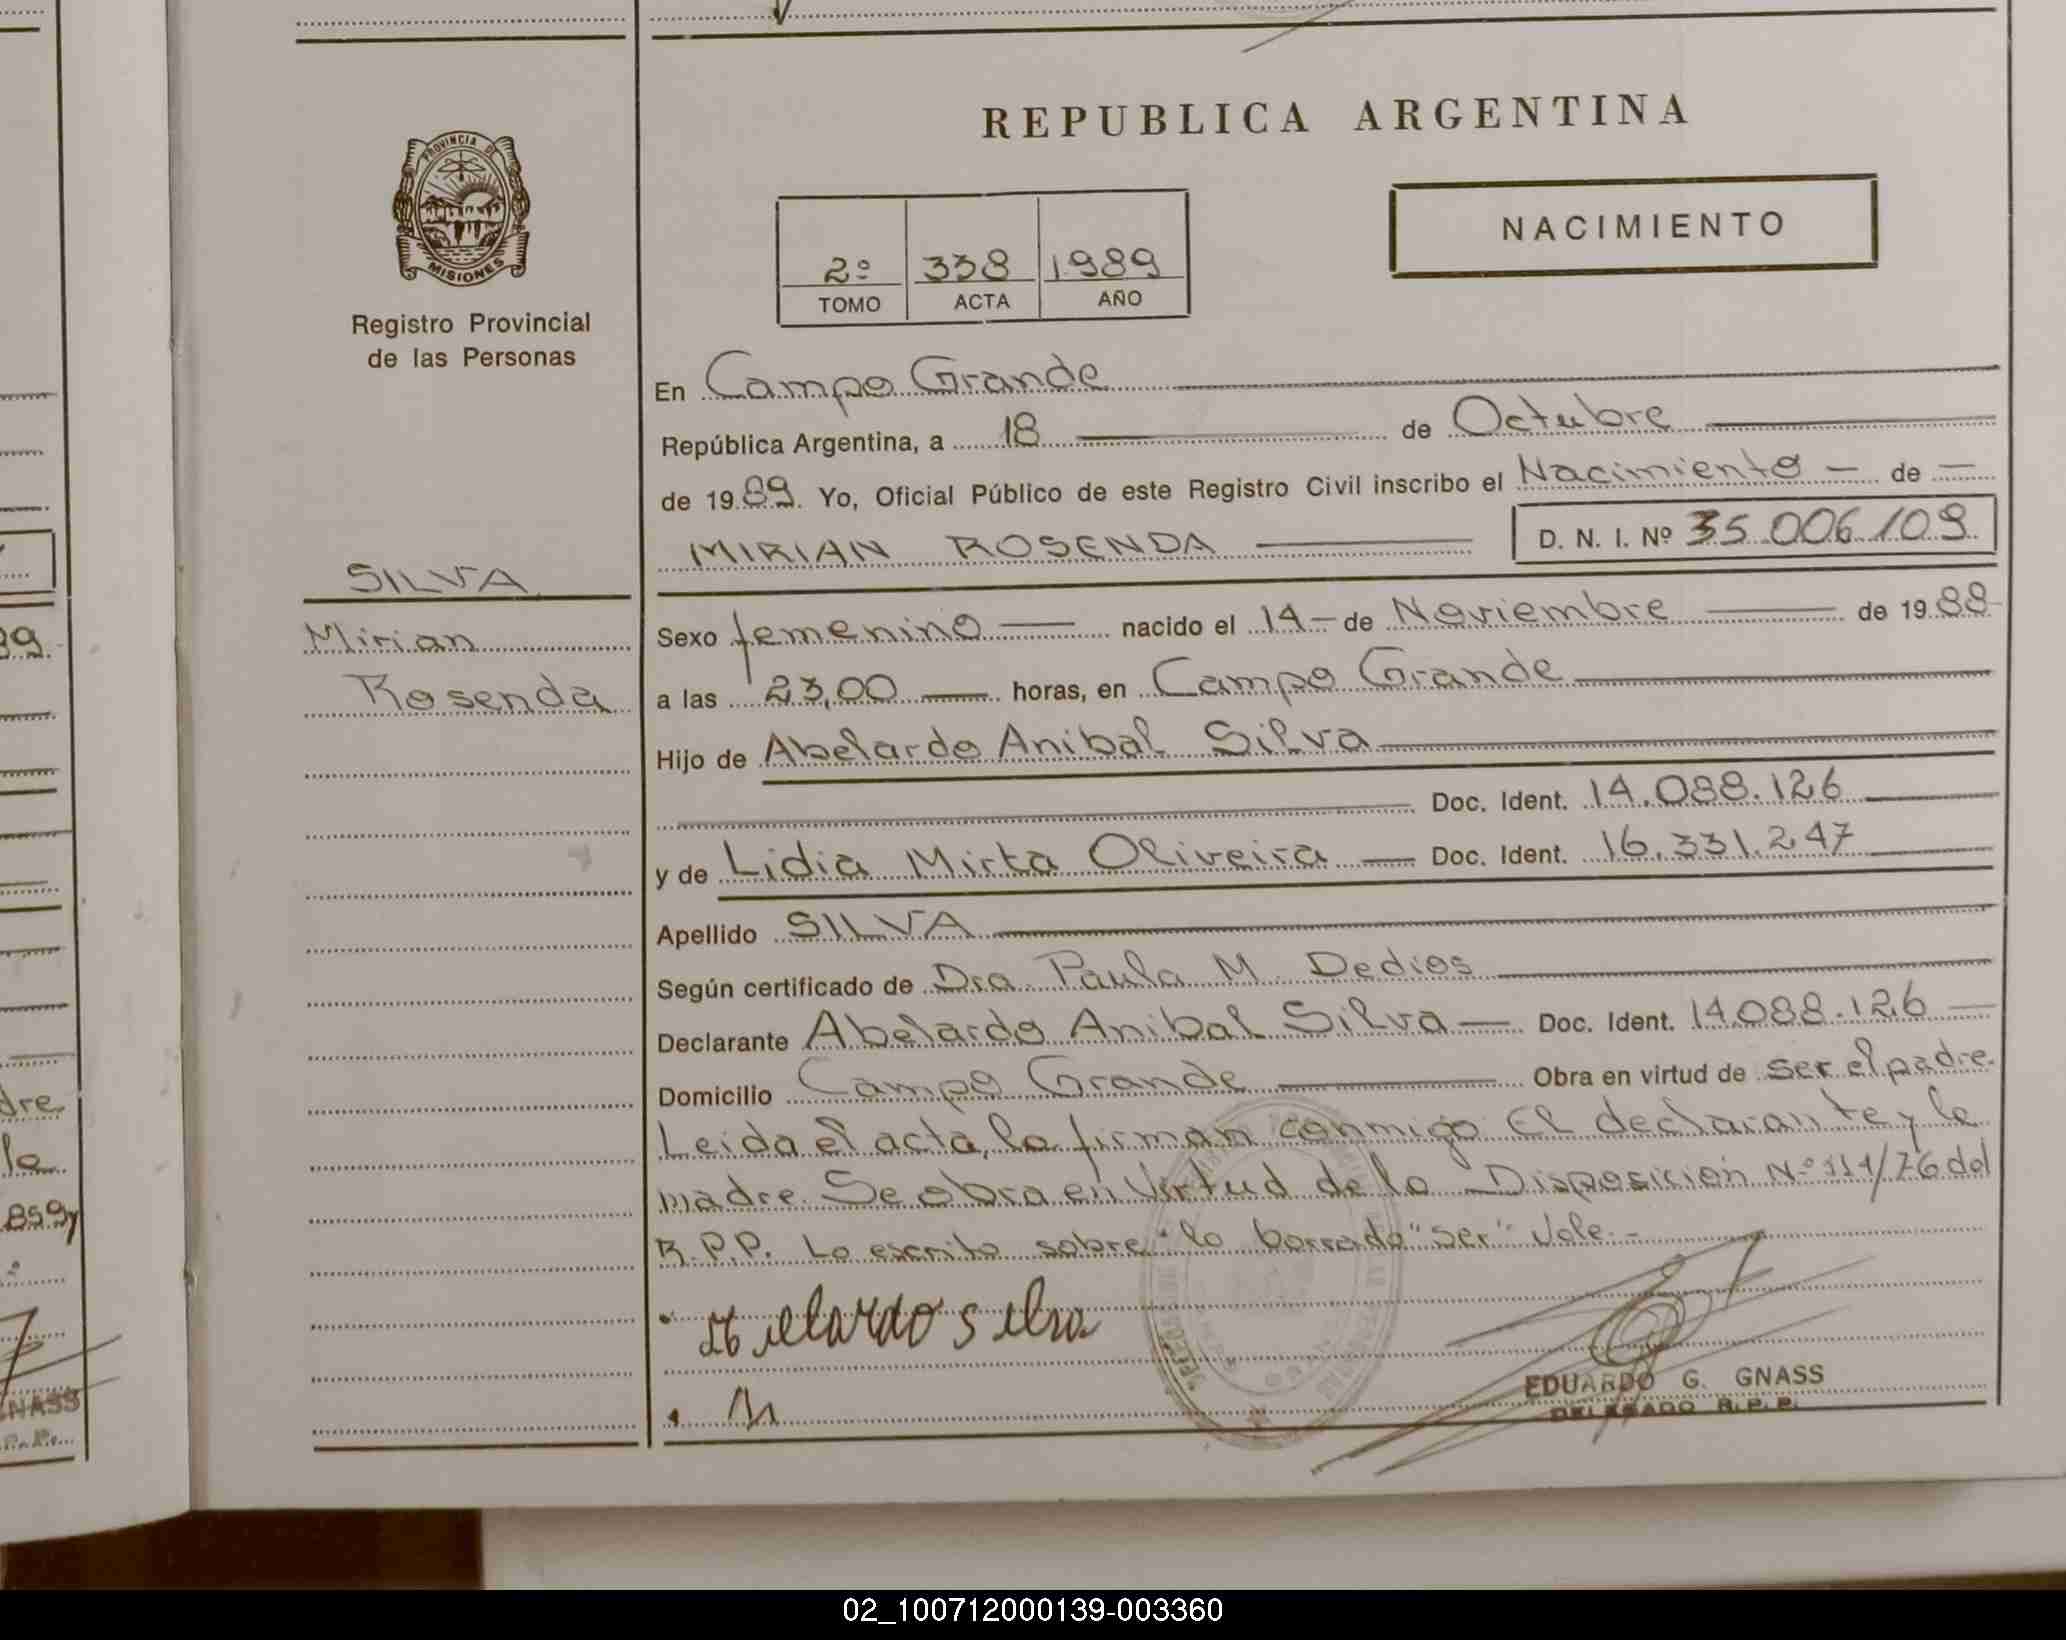 REPUBLICA ARGENTINA
PROVINCIA DE
MISIONES
Registro Provincial
de las Personas
NACIMIENTO
2º 338 1989
TOMO ACTA AÑO
En Campo Grande
República Argentina, a 18 de Octubre
de 1989. Yo, Oficial Público de este Registro Civil inscribo el Nacimiento - de -
MIRIAN ROSENDA D. N. I. Nº 35.006.109
SILVA
Mirian
Rosenda
Sexo femenino nacido el 14 - de Noviembre de 1988
a las 23,00 horas, en Campo Grande
Hijo de Abelardo Anibal Silva
Doc. Ident. 14.088.126
y de Lidia Mirta Oliveira Doc. Ident. 16.331.247
Apellido SILVA
Según certificado de Dra Paula M. Dedios
Declarante Abelardo Anibal Silva Doc. Ident. 14.088.126
Domicilio Campo Grande Obra en virtud de ser el padre.
Leida el acta, la firman conmigo El declarante y la
madre. Se obra en virtud de la Disposicion Nº 111/76 del
R.P.P. Lo escrito sobre "lo borrado "ser" Vale.-
silva
EDUARDO G. GNASS
DELEGADO R.P.P.
39
dre
la
859y
GNASS
02_100712000139-003360